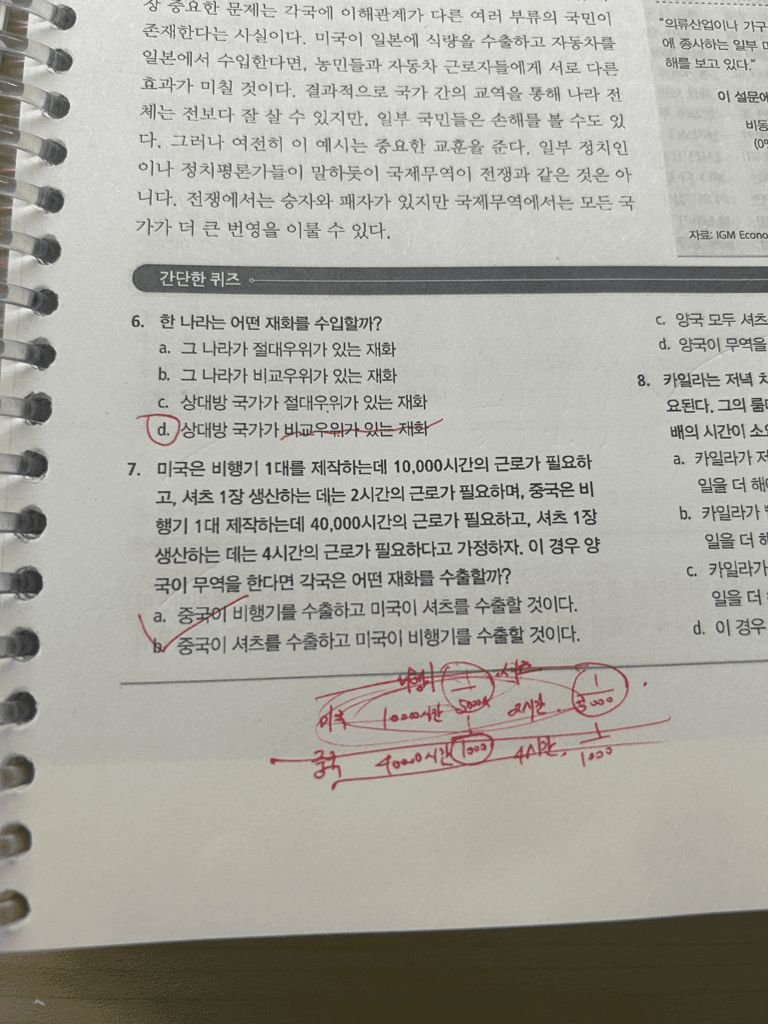 상 중요한 문제는 각국에 이해관계가 다른 여러 부류의 국민이
존재한다는 사실이다. 미국이 일본에 식량을 수출하고 자동차를
일본에서 수입한다면, 농민들과 자동차 근로자들에게 서로 다른
효과가 미칠 것이다. 결과적으로 국가 간의 교역을 통해 나라 전
체는 전보다 잘 살 수 있지만, 일부 국민들은 손해를 볼 수도 있
다. 그러나 여전히 이 예시는 중요한 교훈을 준다. 일부 정치인
이나 정치평론가들이 말하듯이 국제무역이 전쟁과 같은 것은 아
니다. 전쟁에서는 승자와 패자가 있지만 국제무역에서는 모든 국
가가 더 큰 번영을 이룰 수 있다.
"의류산업이나 가구
에 종사하는 일부
해를 보고 있다."
이 설문에
비동
(0%
자료: IGM Econo
간단한 퀴즈
6. 한 나라는 어떤 재화를 수입할까?
a. 그 나라가 절대우위가 있는 재화
b. 그 나라가 비교우위가 있는 재화
c. 상대방 국가가 절대우위가 있는 재화
d. 상대방 국가가 비교우위가 있는 재화
7. 미국은 비행기 1대를 제작하는데 10,000시간의 근로가 필요하
고, 셔츠 1장 생산하는 데는 2시간의 근로가 필요하며, 중국은 비
행기 1대 제작하는데 40,000시간의 근로가 필요하고, 셔츠 1장
생산하는 데는 4시간의 근로가 필요하다고 가정하자. 이 경우 양
국이 무역을 한다면 각국은 어떤 재화를 수출할까?
a. 중국이 비행기를 수출하고 미국이 셔츠를 수출할 것이다.
b. 중국이 셔츠를 수출하고 미국이 비행기를 수출할 것이다.
c. 양국 모두 셔츠
d. 양국이 무역을
8. 카일라는 저녁 차
요된다. 그의 룸메
배의 시간이 소요
a. 카일라가 저
일을 더 해
b. 카일라가
일을 더 해
c. 카일라가
일을 더
d. 이 경우
비행기 셔츠
미국 10000시간 2시간
중국 40000시간 1000 4시간 1/1000